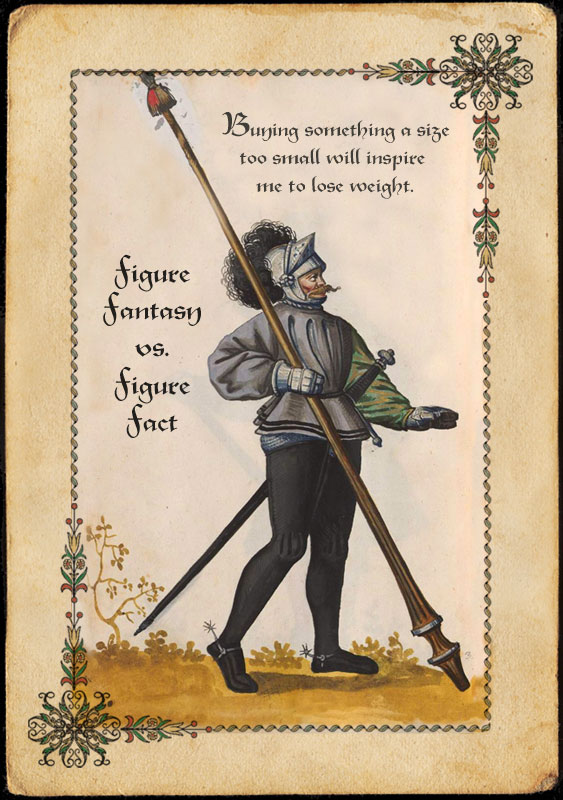 Buying something a size
too small will inspire
me to lose weight.
Figure
Fantasy
vs.
Figure
Fact